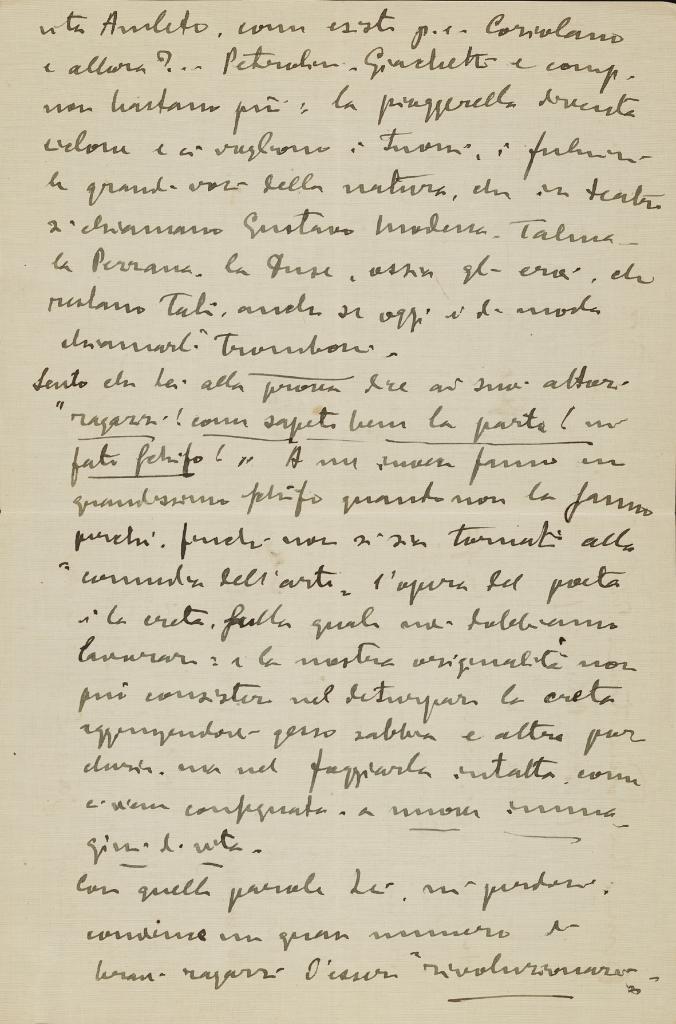 vita Amleto, come esiste p.e. Coriolano
e allora?... Petrolini, Giachetti e comp.
non bastano più: la pioggerella diventa
ciclone e ci vogliono i tuoni, i fulmini
le grandi voci della natura, che in teatro
si chiamano Gustavo Modena, Talma
la Pezzana, la Duse, ossia gli eroi, che
restano tali, anche se oggi è di moda
chiamarli tromboni.
Sento che Lei alla prova dice ai suoi attori
"ragazzi! come sapete bene la parte! mi
fate schifo!" A me invece fanno un
grandissimo schifo quando non la sanno
perchè, finchè non si sia tornati alla
"commedia dell'arte", l'opera del poeta
è la creta, sulla quale noi dobbiamo
lavorare: e la nostra originalità non
può consistere nel deturpare la creta
aggiungendovi gesso sabbia e altre
ma nel foggiarla intatta, come
ci viene consegnata, a nuova imma-
gine di vita.
Con quelle parole Lei, mi perdoni,
convince un numero di
bravi ragazzi d'essere "rivoluzionari"